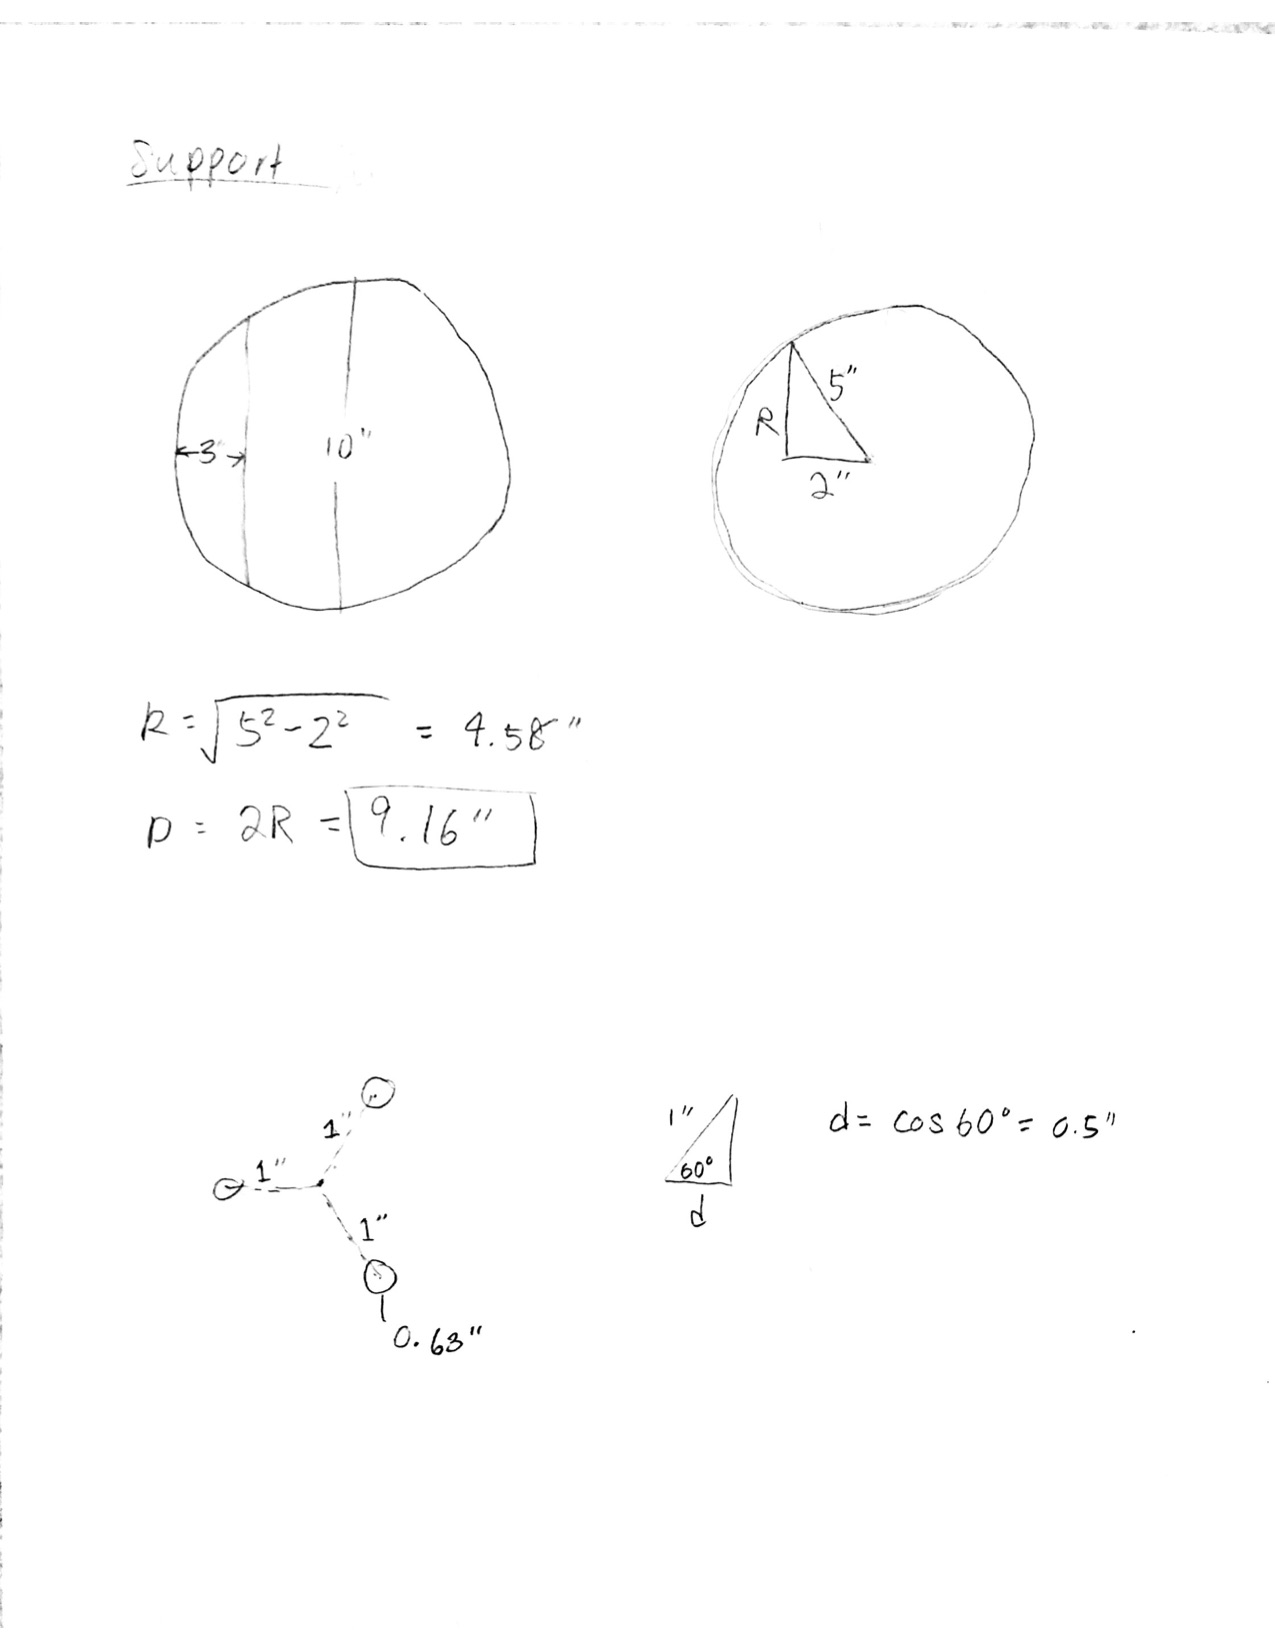 Support
3"
10"
5"
R
2"
R = √5²-2² = 4.58"
D = 2R = 9.16"
1"
1"
1"
0.63"
1"
60°
d
d = cos 60° = 0.5"